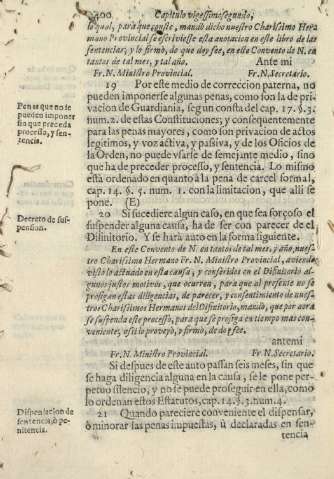 400 Capitulo vigessimosegundo,
lo qual, para que conste, mandò dicho nuestro Charissimo Her-
mano Provincial se escriviesse esta anotacion en este libro de las
sentencias; y lo firmò, de que doy fee, en este Convento de N. en
tantos de tal mes, y tal año. Ante mi
Fr. N. Ministro Provincial. Fr. N. Secretario.
19 Por este medio de correccion paterna, no
pueden imponerse algunas penas, como son la de pri
vacion de Guardiania, segun consta del cap. 17. §. 3.
num. 2. de estas Constituciones; y consequentemente
para las penas mayores, como son privacion de actos
legitimos, y voz activa, y passiva, y de los Oficios de
la Orden, no puede vsarse de semejante medio, sino
que ha de preceder processo, y sentencia. Lo mismo
està ordenado en quanto à la pena de carcel formal,
cap. 14. §. 5. num. 1. con la limitacion, que alli se
pone. (E)
Penas que no se
pueden imponer
sin que preceda
processo, y sen-
tencia.
20 Si sucediere algun caso, en que sea forçoso el
suspender alguna causa, ha de ser con parecer de el
Difinitorio. Y se harà auto en la forma siguiente.
Decreto de sus-
pension.
En este Convento de N. en tantos de tal mes, y año, nues-
tro Charissimo Hermano Fr. N. Ministro Provincial, aviendo
visto lo actuado en esta causa, y conferidos en el Difinitorio al-
gunos justos motivos, que ocurren, para que al presente no se
prosigan estas diligencias, de parecer, y consentimiento de nues-
tros Charissimos Hermanos del Difinitorio, mandò, que por aora
se suspenda este processo, para que se prosiga en tiempo mas con-
veniente, assi lo proveyò, y firmò, de do y fee.
antemi
Fr. N. Ministro Provincial. Fr. N. Secretario.
Si despues de este auto passan seis meses, sin que
se haga diligencia alguna en la causa, se le pone per-
petuo silencio, y no se puede proseguir en ella, como
lo ordenan estos Estatutos, cap. 14. §. 3. num. 4.
21 Quando pareciere conveniente el dispensar,
ò minorar las penas impuestas, ù declaradas en sen-
tencia
Dispensacion de
sentencia, ò pe-
nitencia.